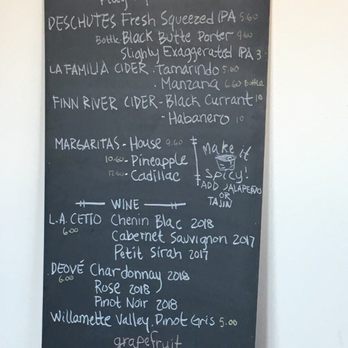 DESCHUTES Fresh Squeezed IPA 5.60
Bottle Black Butte Porter 9.60
Slighly Exaggerated IPA 3
LA FAMILIA CIDER - Tamarindo 5.60
- Manzana 6.60 Bottle
FINN RIVER CIDER - Black Currant 10
- Habanero 10
MARGARITAS - House 9.60
10.60 - Pineapple
12.60 - Cadillac
Make it
Spicy!
ADD JALAPEÑO
OR
TAJIN
WINE
L.A. CETTO Chenin Blac 2018
6.00
Cabernet Sauvignon 2017
Petit Sirah 2017
DEOVÉ Chardonnay 2018
6.00
Rose 2018
Pinot Noir 2018
Willamette Valley Pinot Gris 5.00
grapefruit